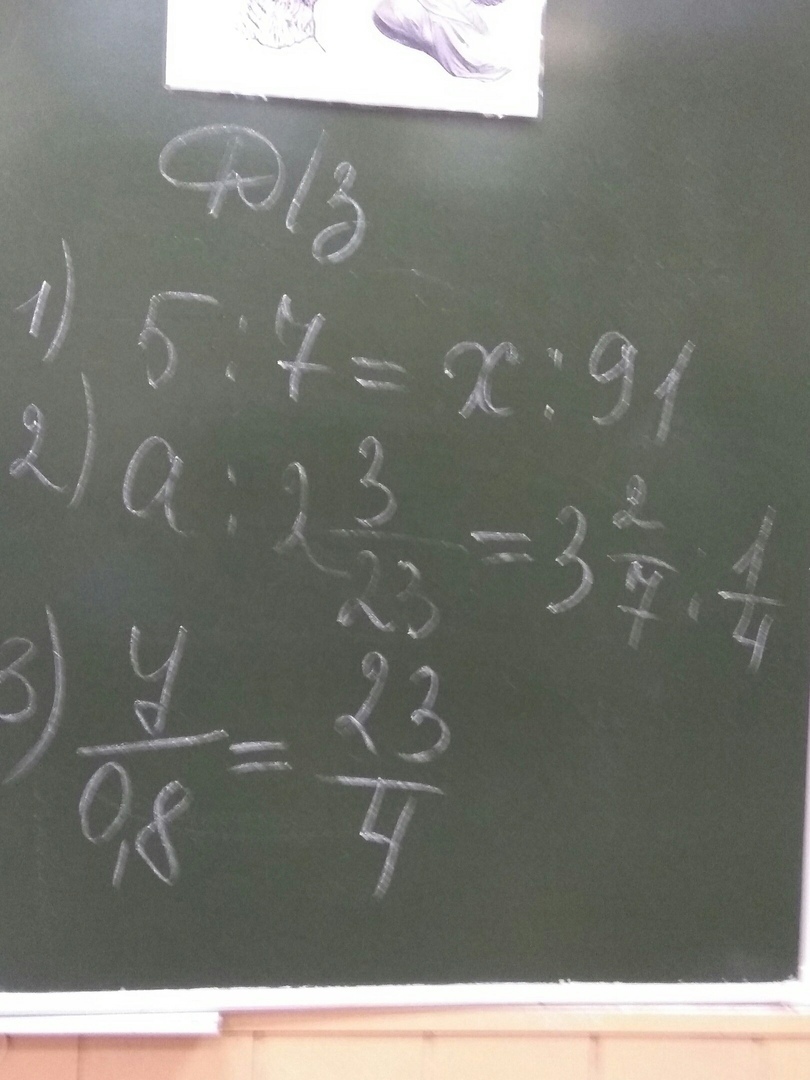 Д/з
1) 5 : 7 = x : 91
2) a : 2 3/23 = 3 2/7 : 1/4
3) y/0,8 = 23/4